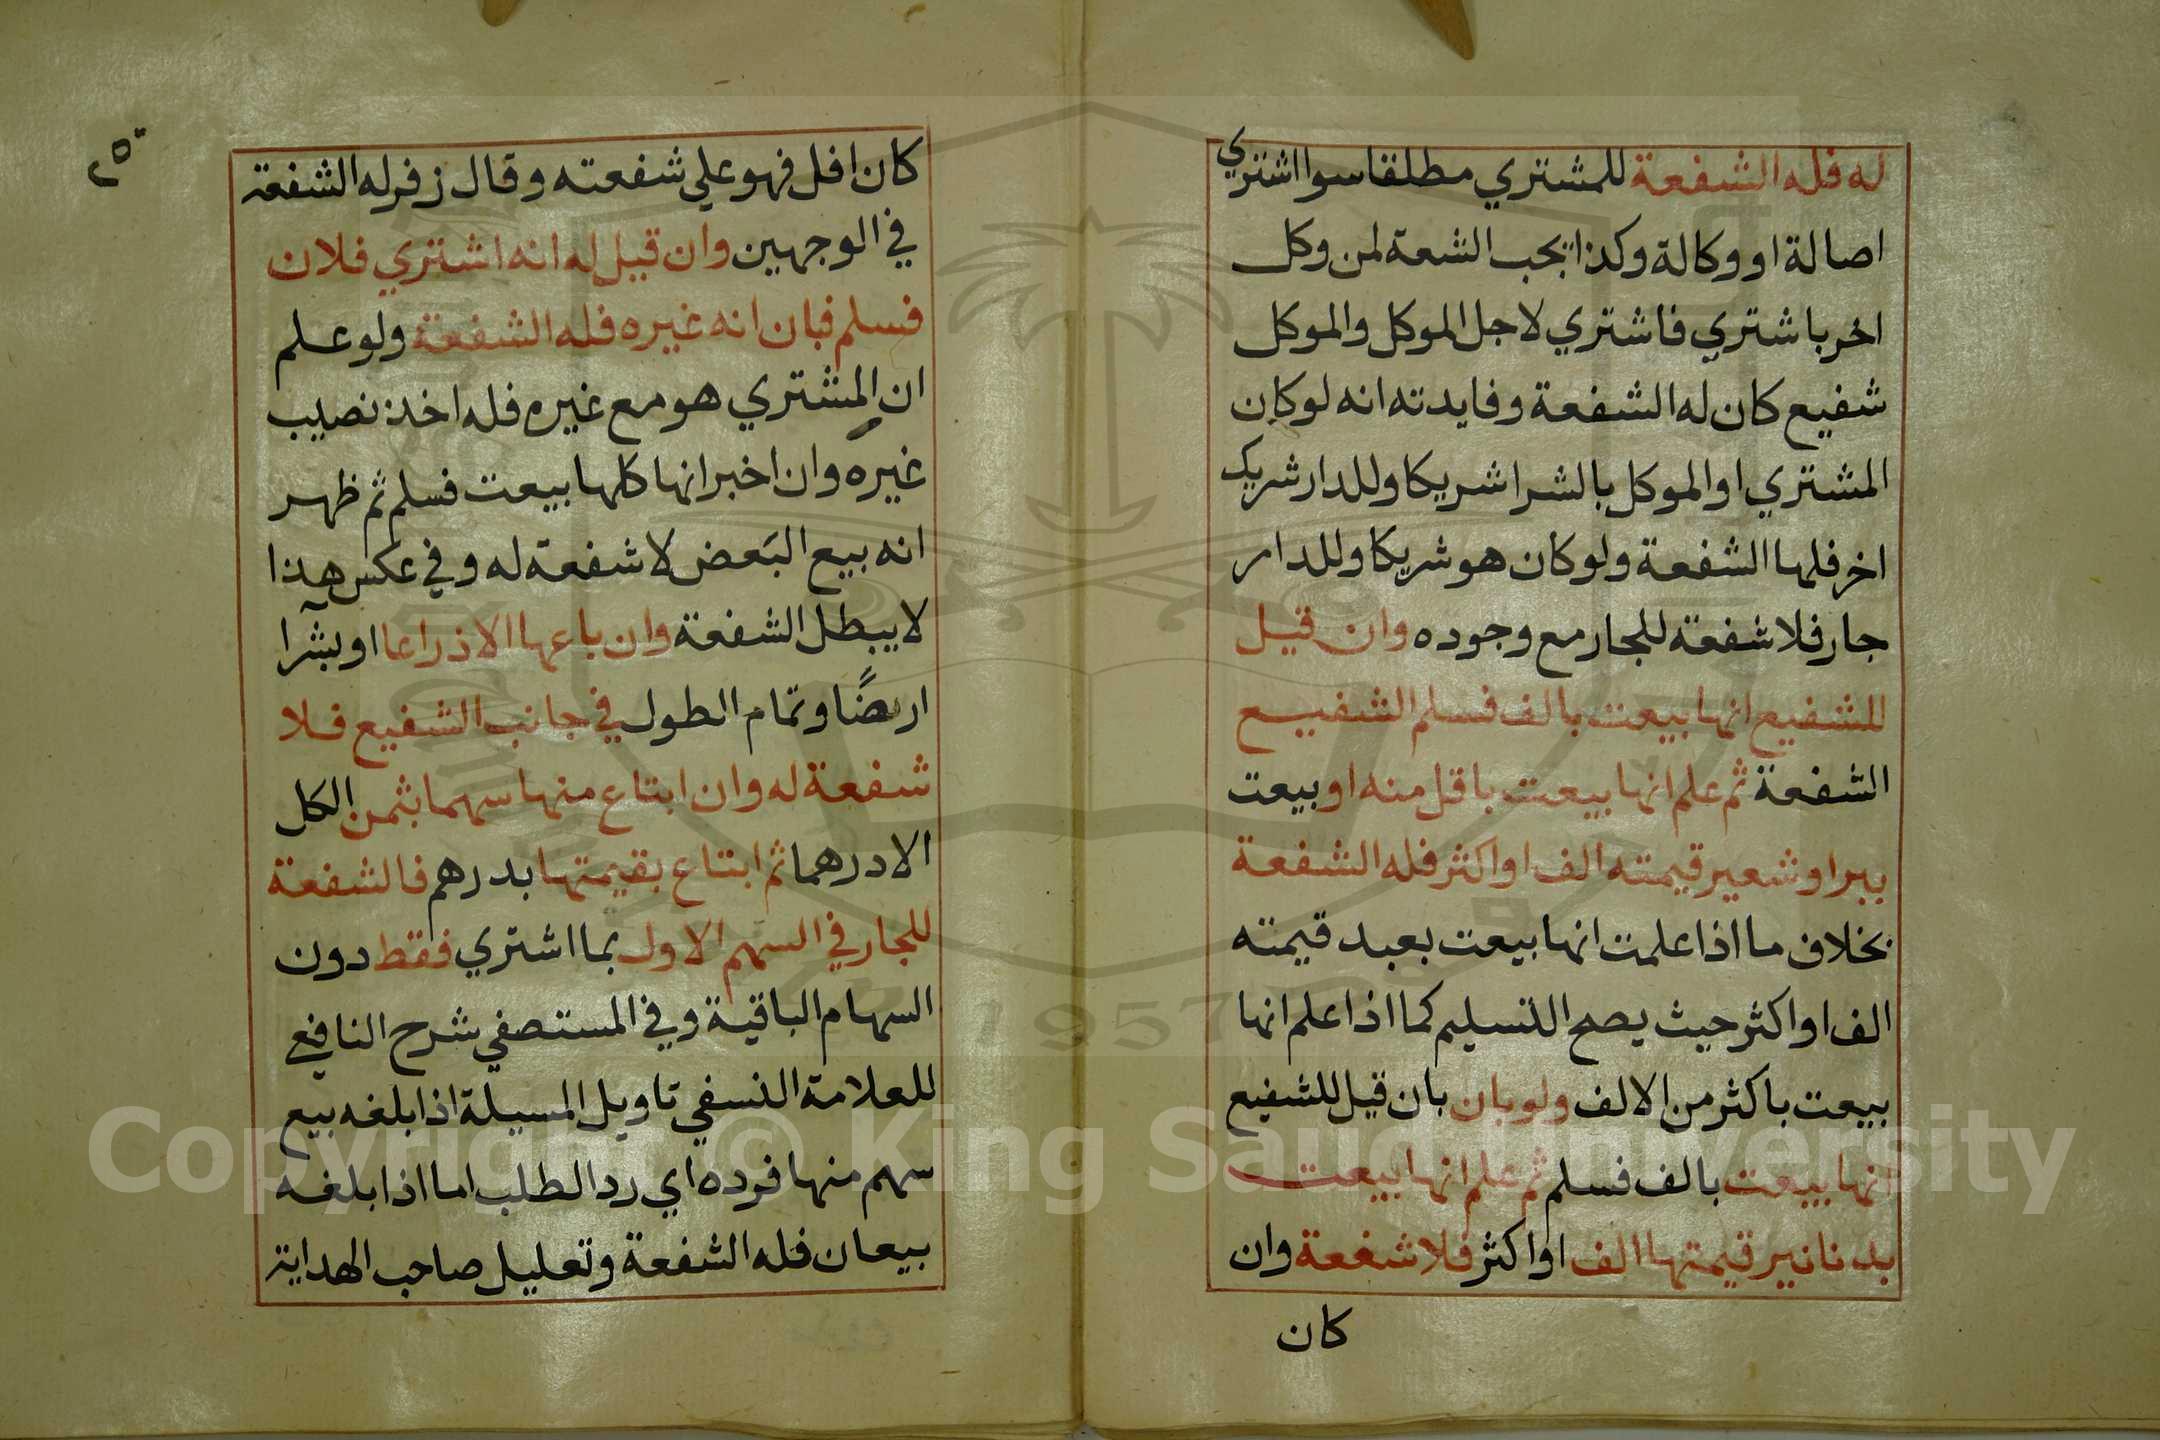 له فله الشفعة للمشتري مطلقا سوا اشتري
اصالة او وكالة وكذا تجب الشعة لمن وكل
اخر باشتري فاشتري لاجل الموكل والموكل
شفيع كان له الشفعة وفايدته انه لو كان
المشتري او الموكل بالشرا شريكا وللدار شريك
اخر فلهما الشفعة ولو كان هو شريكا وللدار
جار فلا شفعة للجار مع وجوده وان قيل
للشفيع انها بيعت بالف فسلم الشفيع
الشفعة ثم علم انها بيعت باقل منه او بيعت
ببر او شعير قيمته الف او اكثر فله الشفعة
بخلاف ما اذا علمت انها بيعت بعبد قيمته
الف او اكثر حيث يصح التسليم كما اذا علم انها
بيعت باكثر من الالف ولو بان بان قيل للشفيع
انها بيعت بالف فسلم ثم علم انها بيعت
بدنانير قيمتها الف او اكثر فلا شفعة وان
كان
٢٥٠
كان افل فهو علي شفعته وقال زفر له الشفعة
في الوجهين وان قيل له انه اشتري فلان
فسلم فبان انه غيره فله الشفعة ولو علم
ان المشتري هو مع غيره فله اخذ نصيب
غيره وان اخبر انها كلها بيعت فسلم ثم ظهر
انه بيع البعض لا شفعة له وفي عكس هذا
لا يبطل الشفعة وان باعها الا ذراعا او بشرا
ارضا وتمام الطول في جانب الشفيع فلا
شفعة له وان ابتاع منها سهما بثمن الكل
الا درهما ثم ابتاع بقيمتها بدرهم فالشفعة
للجار في السهم الاول بما اشتري فقط دون
السهام الباقية وفي المستصفي شرح النافع
للعلامة النسفي تاويل المسيلة اذا بلغه بيع
سهم منها فرده اي رد الطلب اما اذا بلغه
بيعان فله الشفعة وتعليل صاحب الهداية
1957
Copyright © King Saud University